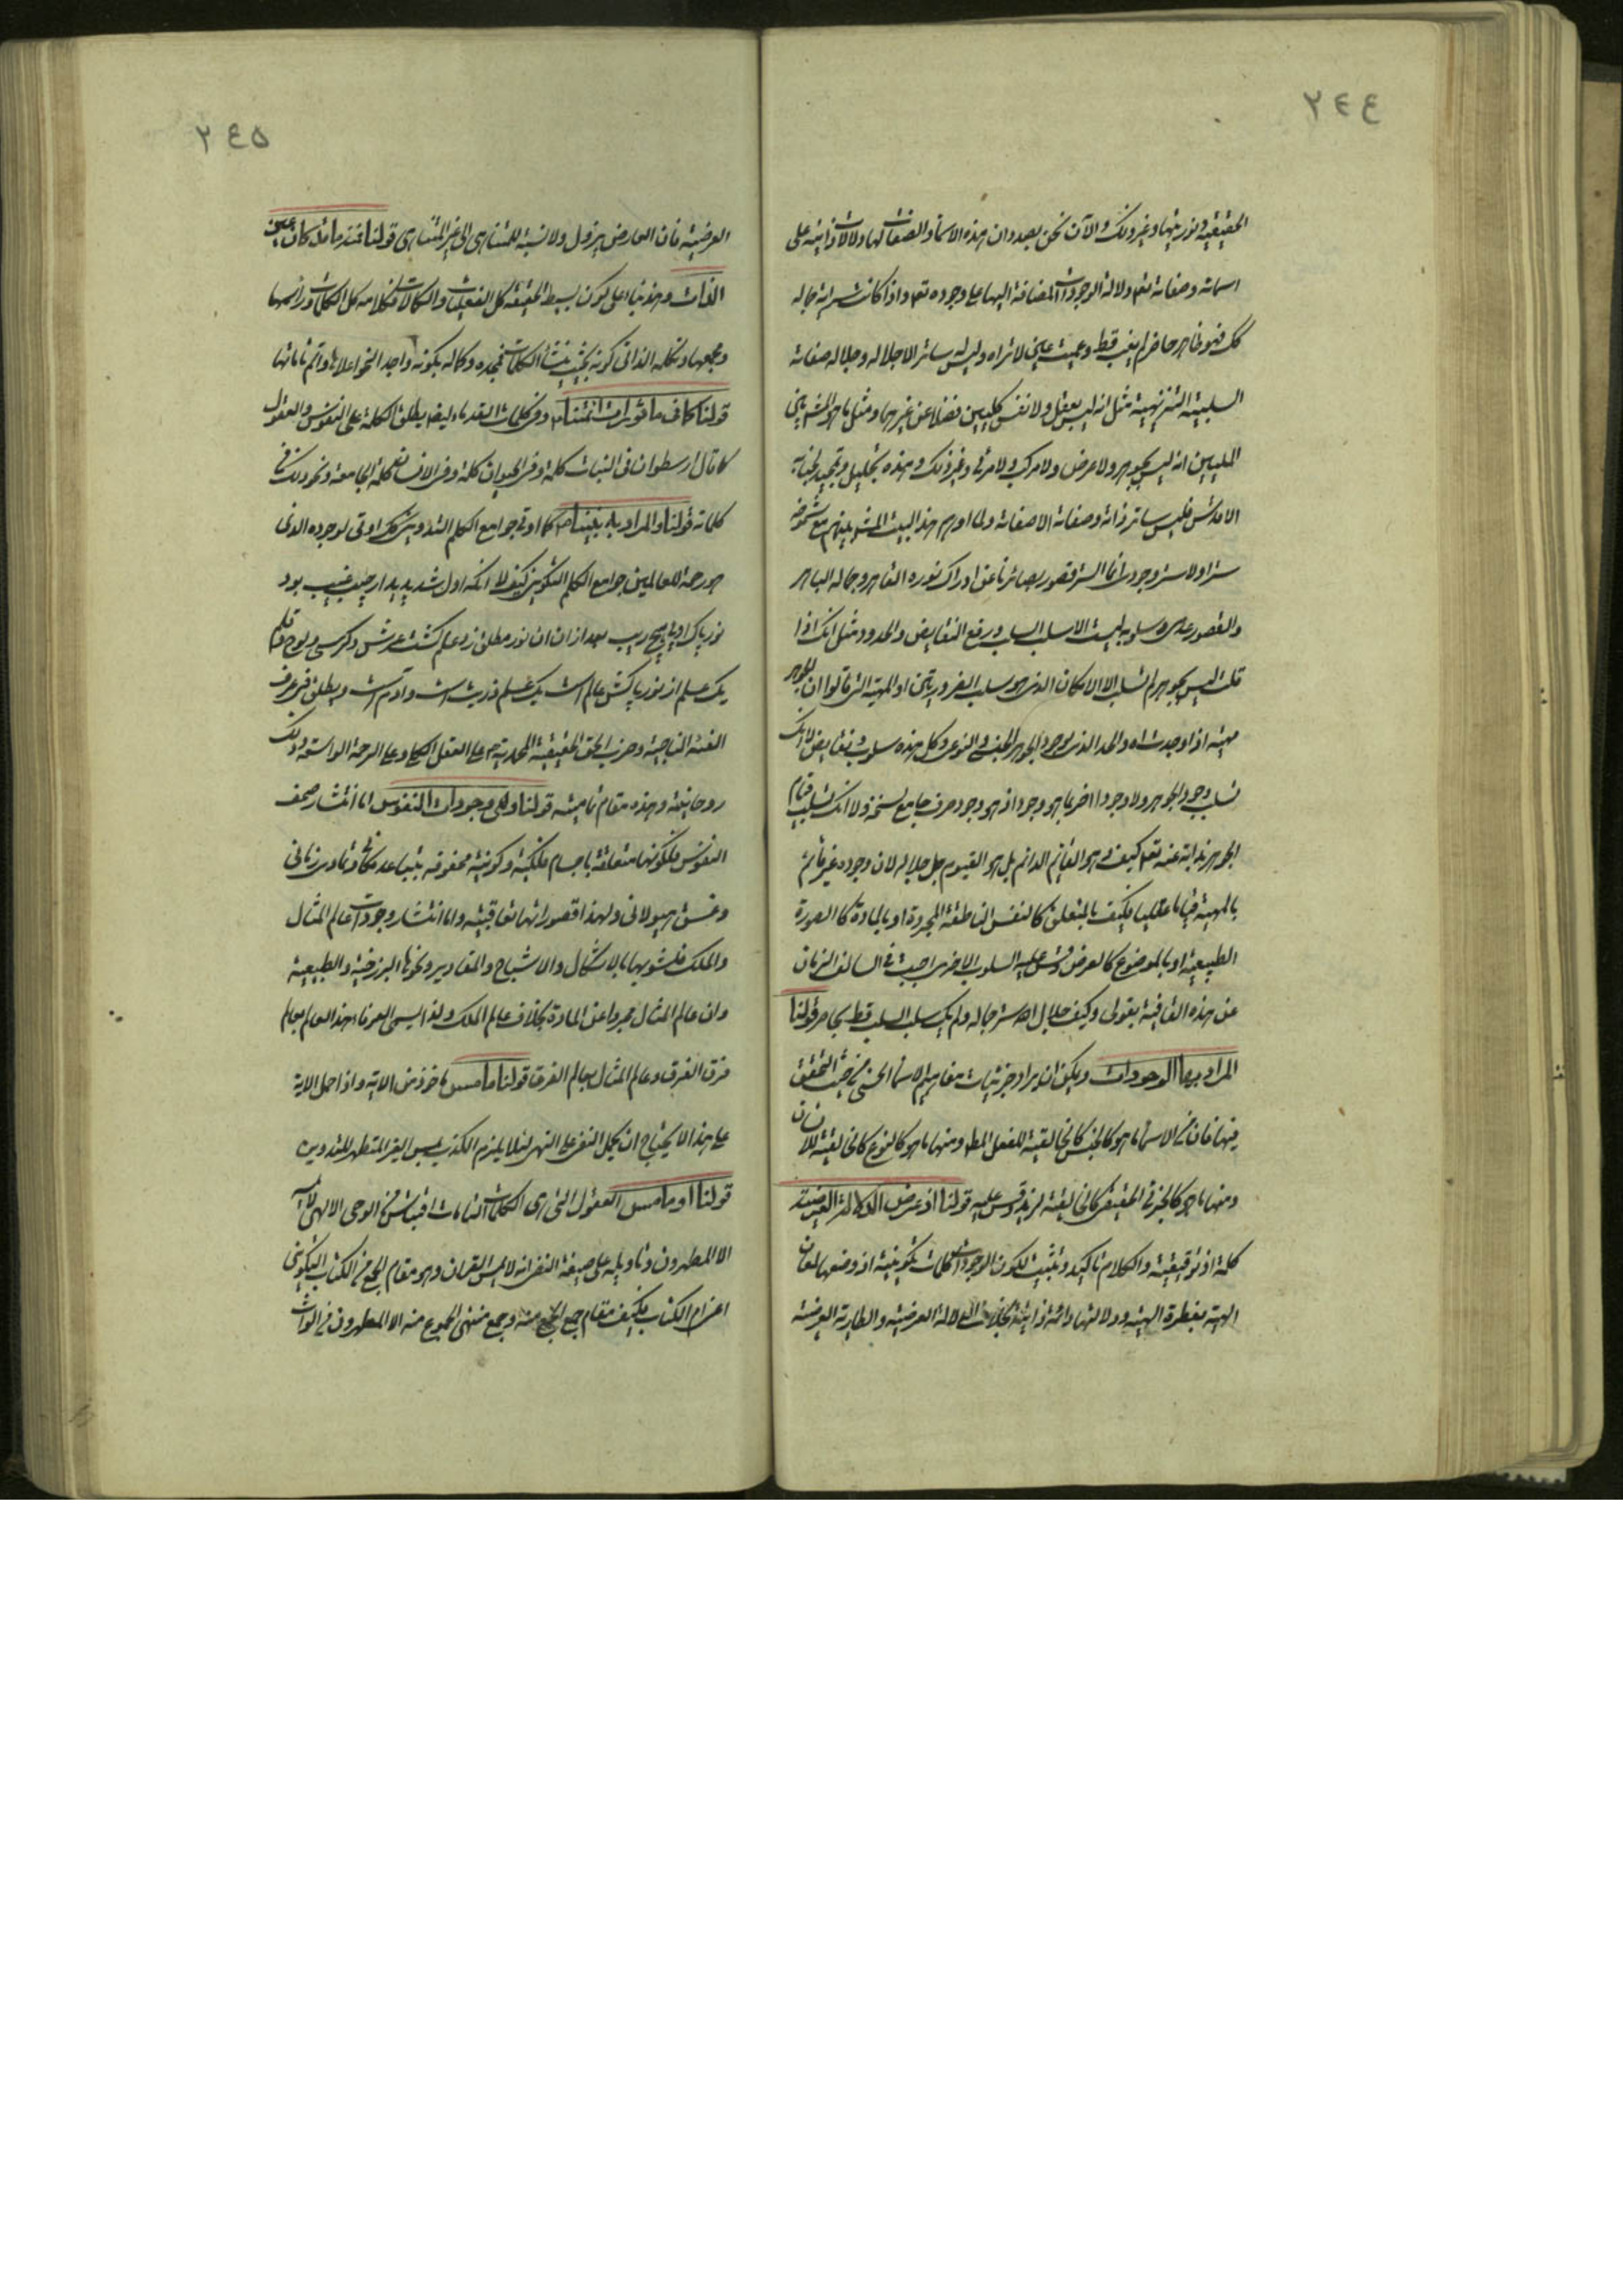 ٢٤٤
الحقيقية ونوريتها وغير ذلك والآن نحن بصدد ان هذه الاسماء والصفات لها دلالات ذاتية على
اسمائه وصفاته تعه ودلالة الوجودات المضافة اليها على وجوده تعه واذا كانت مراتب جماله
كك فهو ظاهر حاضر لم يغب قط وعميت عين لا تراه وليس له ساتر الا جلاله وجلاله صفاته
السلبية التنزيهية مثل انه ليس بعقل ولا نفس كليين فضلا عن غيرهما ومثل ما هو المشهور بين
المليين انه ليس بجوهر ولا عرض ولا مركب ولا مرئى وغير ذلك وهذه تجليل وتمجيد لجنابه
الاقدس فليس ساتر ذاته وصفاته الا صفاته ولما اوهم هذا البيت المشهور بينهم مع شموخه
سترا ولا ستر وجوديا انما الستر قصور بصائرنا عن ادراك نوره القاهر وجماله الباهر
والقصور عدمى وسلوبه ليست الا سلب السلب ورفع النقايص والحدود مثل انك اذا
قلت ليس بجوهر لم تسلب الا الامكان الذى هو سلب الضرورتين او المهية التى قالوا ان الجوهر
مهية اذا وجدت اه والحد الذى لوجود الجوهر الجنسى والنوعى وكل هذه سلوب ونقايص لا انك
تسلب وجود الجوهر ولا وجودا اخر بما هو وجود اذ هو وجود صرف جامع لسنخه ولا انك تسلب قيام
الجوهر بذاته عنه تعه كيف وهو القائم الدائم بل هو القيوم جل جلاله لان وجوده غير قائم
بالمهية قياما عقليا فكيف بالمتعلق كالنفس الناطقة المجردة او بالمادة كالصورة
الطبيعية او بالموضوع كالعرض وقس عليه السلوب الاخرى اجبت فى السالف الزمان
عن هذه القافية بقولى وكيف جلال الله ستر جماله ولم يك سلب السلب قط بحاصر قولنا
المراد بها الوجودات ويمكن ان يراد جزئيات مفاهيم الاسماء الحسنى من حيث التحقق
فيها فان من الاسماء ما هو كالجنس كالخالقية للفعل المطلق ومنها ما هو كالنوع كالخالقية للانسان
ومنها ما هو كالجزئى الحقيقى كالخالقية لزيد وقس عليه قولنا اذ عرض الدلالة العرضية
كلمة اذ توقيتية والكلام تاكيد وتثبيت لكون الوجودات كلمات تكوينية اذ وضعها لمعان
الهية بفطرة الهية ودلالتها دائمة ذاتية بخلاف الدلالة العرضية والطارية العرضية
٢٤٥
العرضية فان العارض يزول ولا نسبة للمتناهى الى غير المتناهى قولنا فتذ ما مذ كان عين
الذات وهذه بناء على كون بسيط الحقيقة كل الفعليات والكمالات فكلامه كل الكلمات ورائسها
ومجمعها وتكلمه الذاتى كونه بحيث ينشأ الكلمات فمجده وكماله بكونه واجد النحو اعلاها واتم تماماتها
قولنا كما فى ماثورات ائمتنا وفى كلمات القدماء ايضا يطلق الكلمة على النفوس والعقول
كما قال ارسطو ان فى النبات كلمة وفى الحيوان كلمة وفى الانسان كلمة الجامعة ونحو ذلك فى
كلماته قولنا والمراد به نبينا كما اوتى جوامع الكلم التدوينى كك اوتى لوجوده الذى
هو رحمة للعالمين جوامع الكلم التكوينى كيف لا انكه اول شد پديد از جيب غيب بود
نور پاك او بى هيچ ريب بعد از ان ان نور مطلق زد علم گشت عرش وكرسى ولوح وقلم
يك علم از نور پاكش عالم است يك علم ذريت است وآدم است ويطلق فى عرف
الفئة الناجية وحزب الحق الحقيقة المحمدية على العقل الكلى وعلى الرحمة الواسعة وذلك
روحانيته وهذه مقام تاميته قولنا ولى وجودات النفوس اما انتشار صحف
النفوس فلكونها متعلقة باجسام فلكية وكونية محفوفة بتباعد مكانى وتمادى زمانى
وغسق هيولانى ولهذا قصوراتها تعاقبية واما انتشار وجودات عالم المثال
والملك فلشوبهما بالاشكال والاشباح والمقادير ونحوها البرزخية والطبيعية
وان عالم المثال مجردا عن المادة بخلاف عالم الملك ولذا يسمى العرفاء هذا العالم بعالم
فرق الفرق وعالم المثال بعالم الفرق قولنا ما مس ماخوذ من الاية واذا حمل الاية
على هذا لا يحتاج ان يحمل النفى على النهى لئلا يلزم الكذب بمس الغير المتطهر للتدوينى
قولنا او ما مس العقول التى هى الكلمات التامات اقتباس من الوحى الالهى لا
الا المطهرون وتاويله على صيغة النفى انه لا يمس القران وهو مقام الجمع من الكتاب التكوينى
اعنى ام الكتاب فكيف مقام جمع الجمع منه وجمع منتهى الجموع منه الا المطهرون من الواث